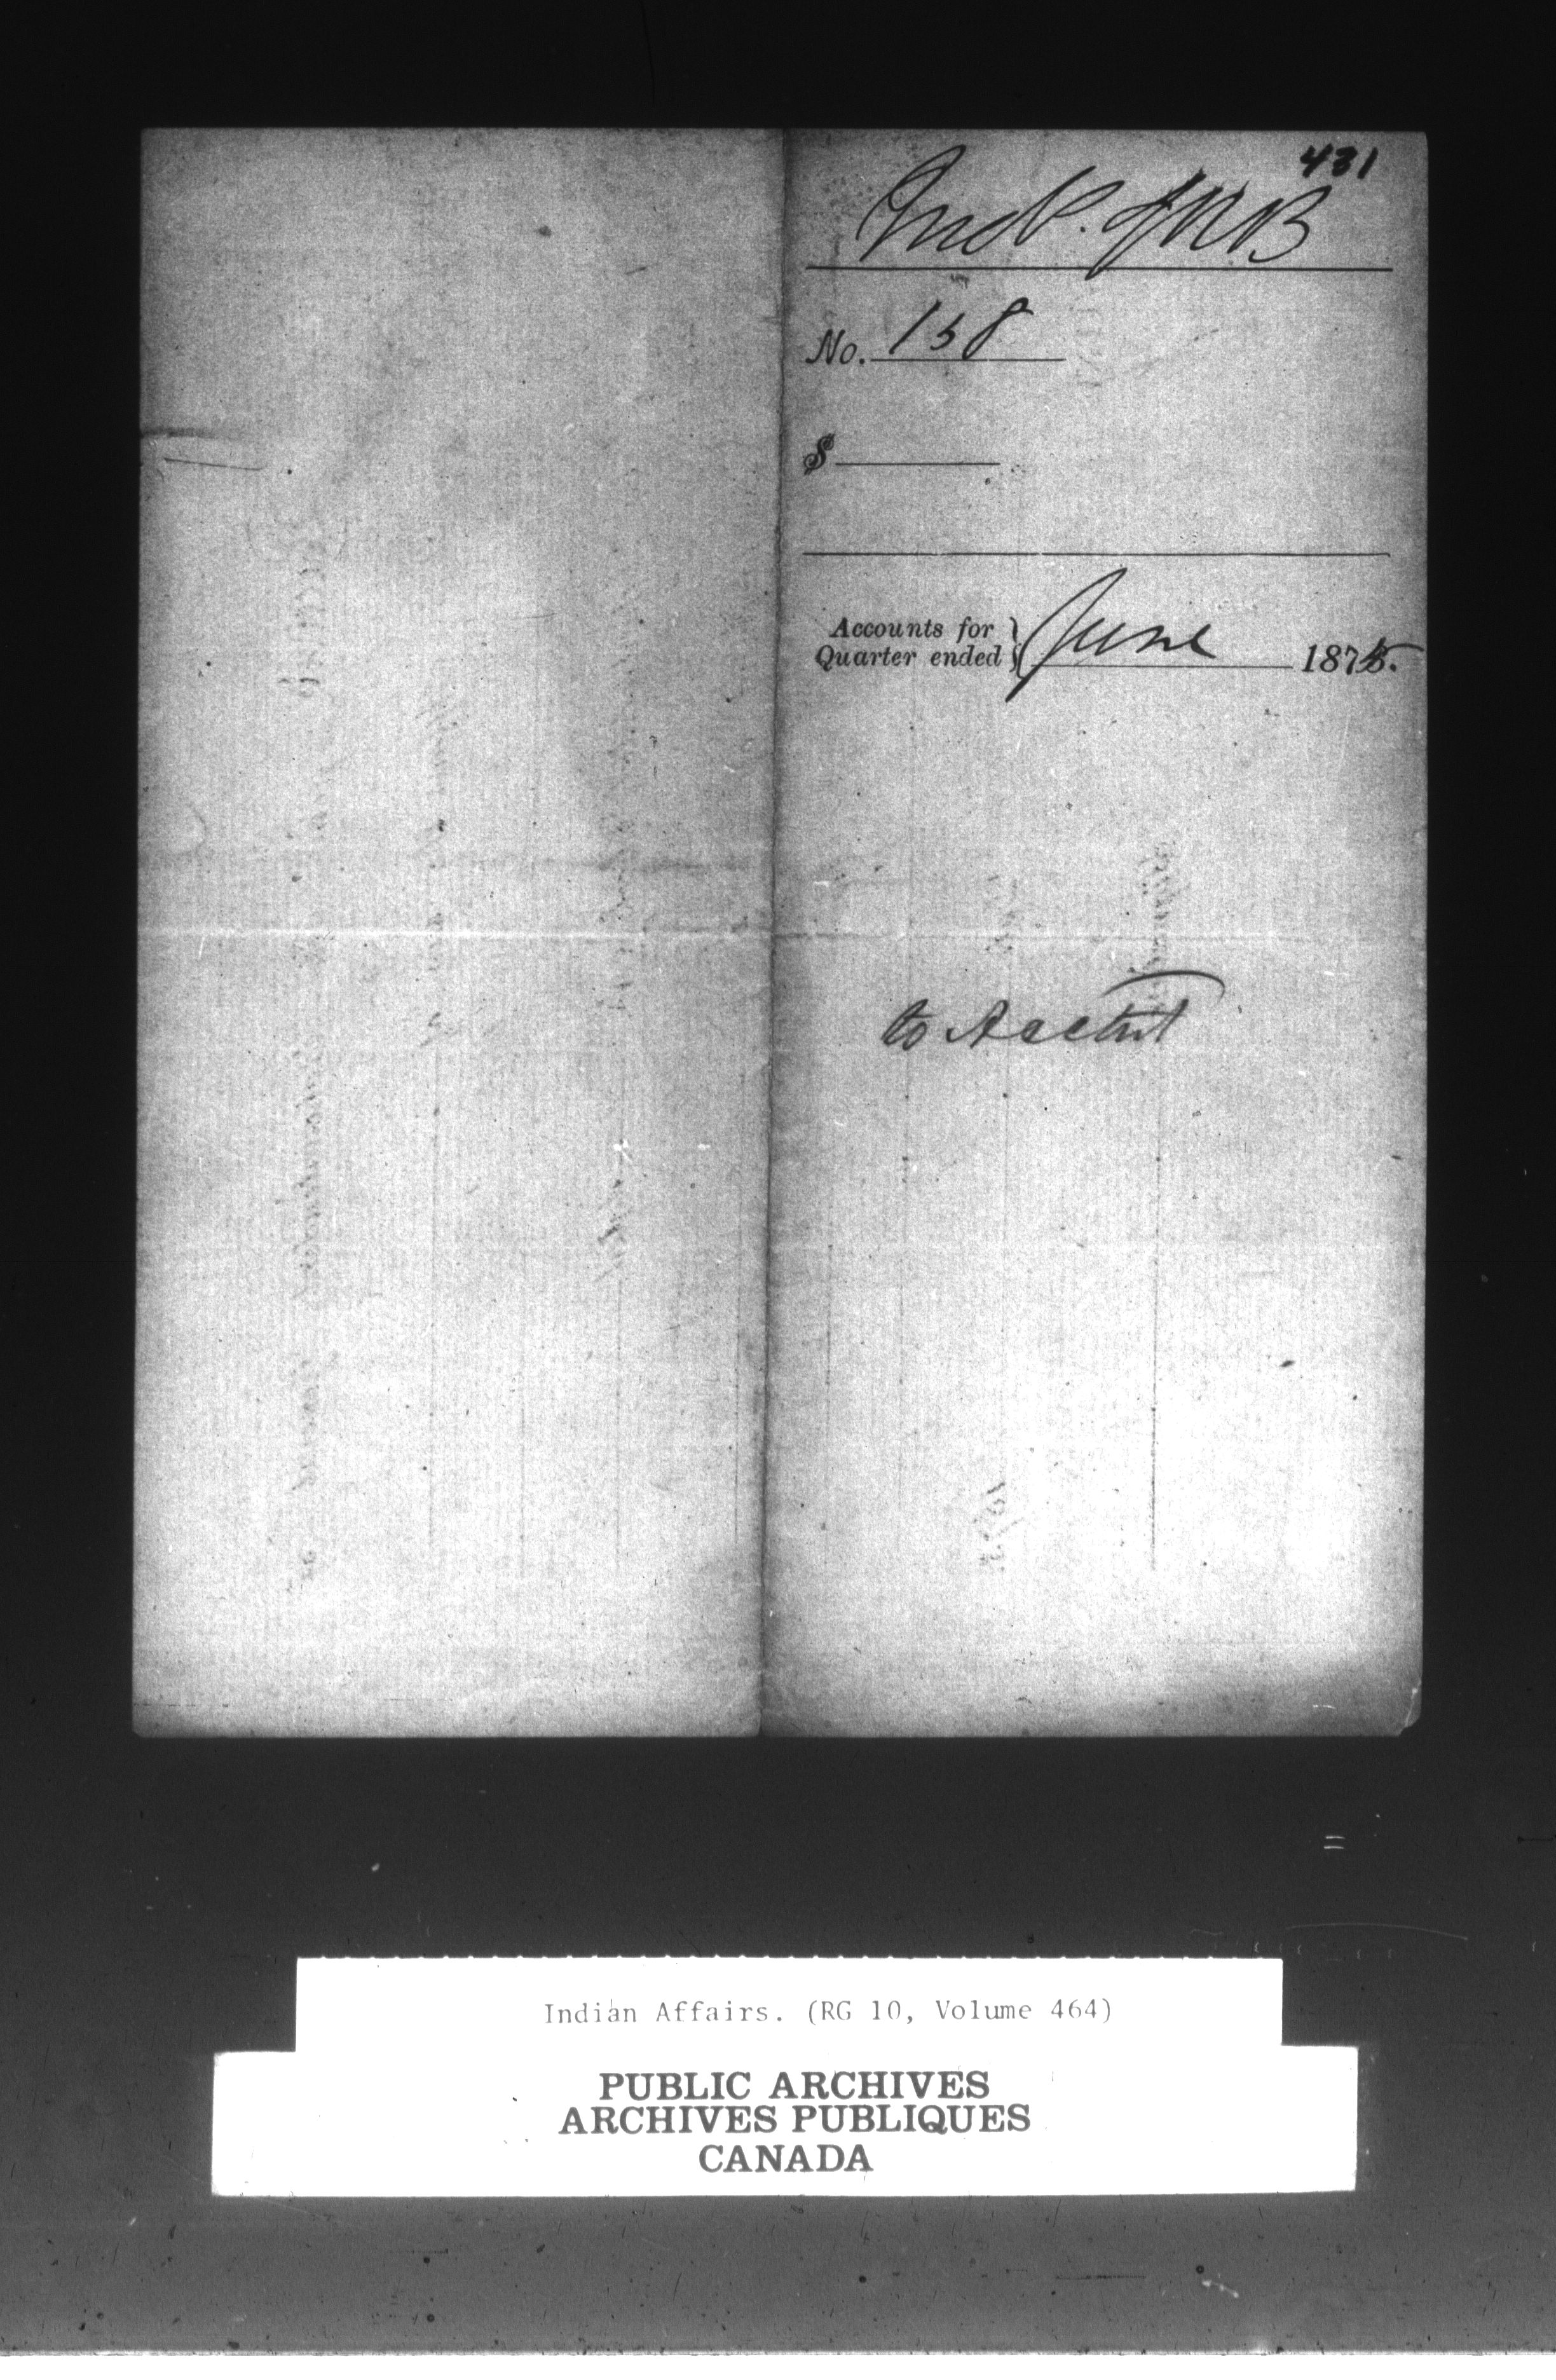 431
No. 158
$
Accounts for
Quarter ended } June 1875.
to Acctnt
Indian Affairs. (RG 10, Volume 464)
PUBLIC ARCHIVES
ARCHIVES PUBLIQUES
CANADA